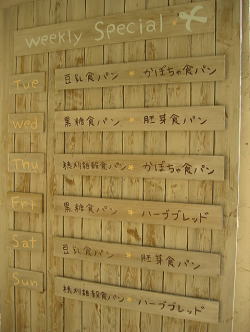 weekly Special
Tue 豆乳食パン * かぼちゃ食パン
Wed 黒糖食パン * 胚芽食パン
Thu 雑穀食パン * かぼちゃ食パン
Fri 黒糖食パン * ハーブブレッド
Sat 豆乳食パン * 胚芽食パン
Sun 雑穀食パン * ハーブブレッド